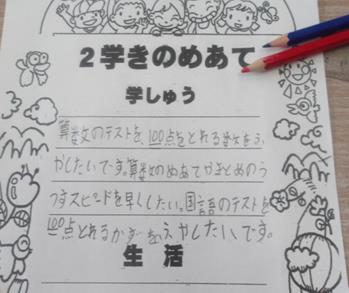 2学きのめあて
学しゅう
算数のテストを100点をとれる数をふ
やしたいです。算数のめあてやまとめのう
つすスピードを早くしたい。国語のテストを
100点とれるかずをふやしたいです。
生活